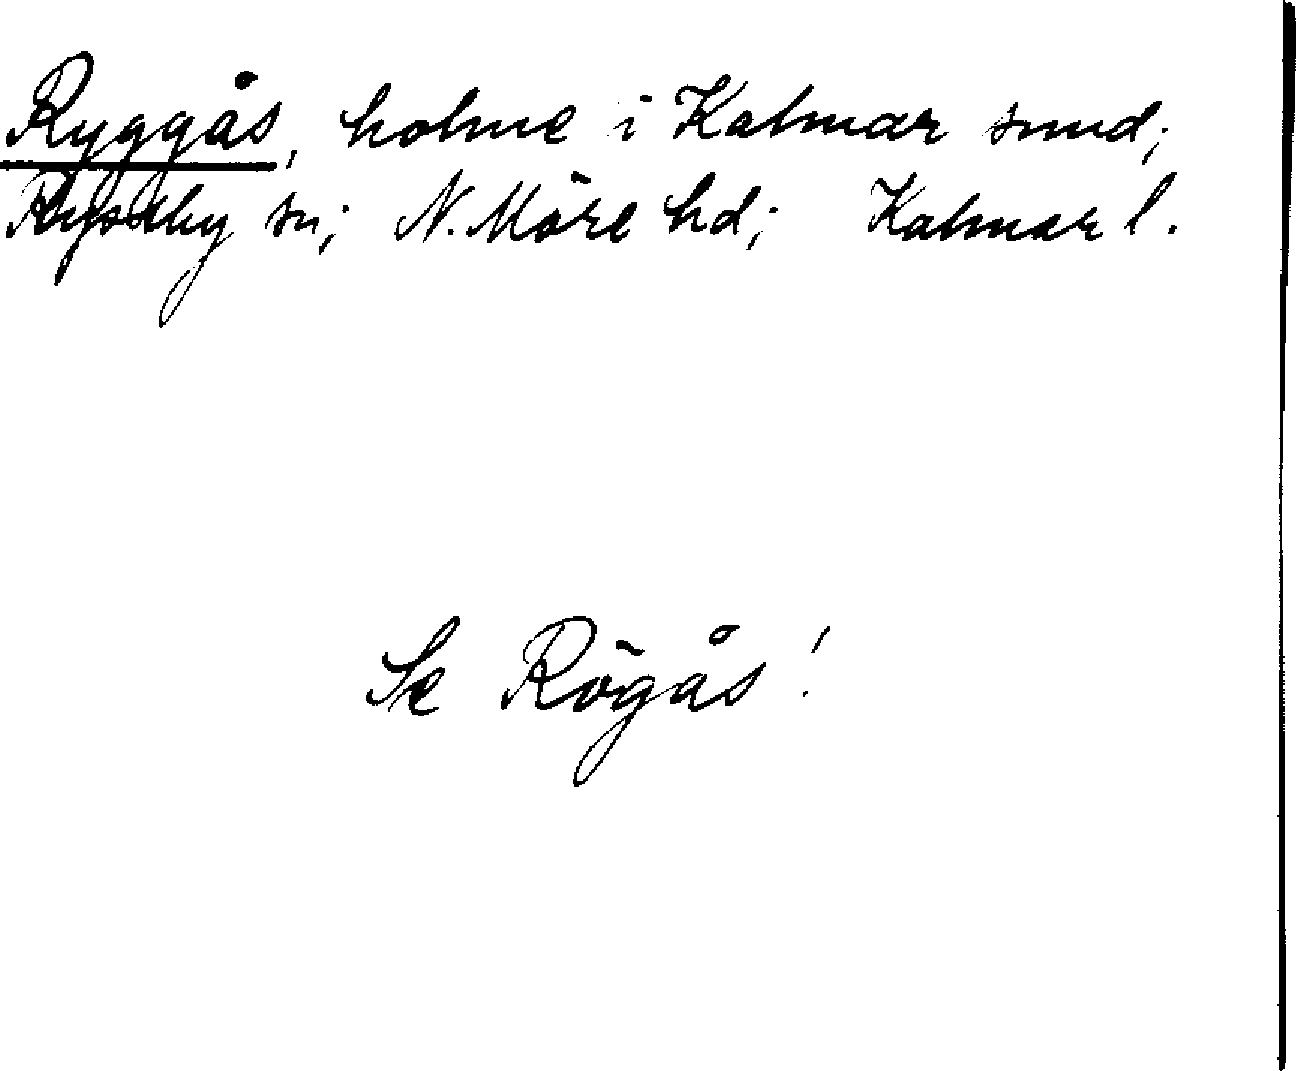 Ryggås, holme i Kalmar sund;
Ryssby sn; N. Möre hd; Kalmar l.
Se Rögås!